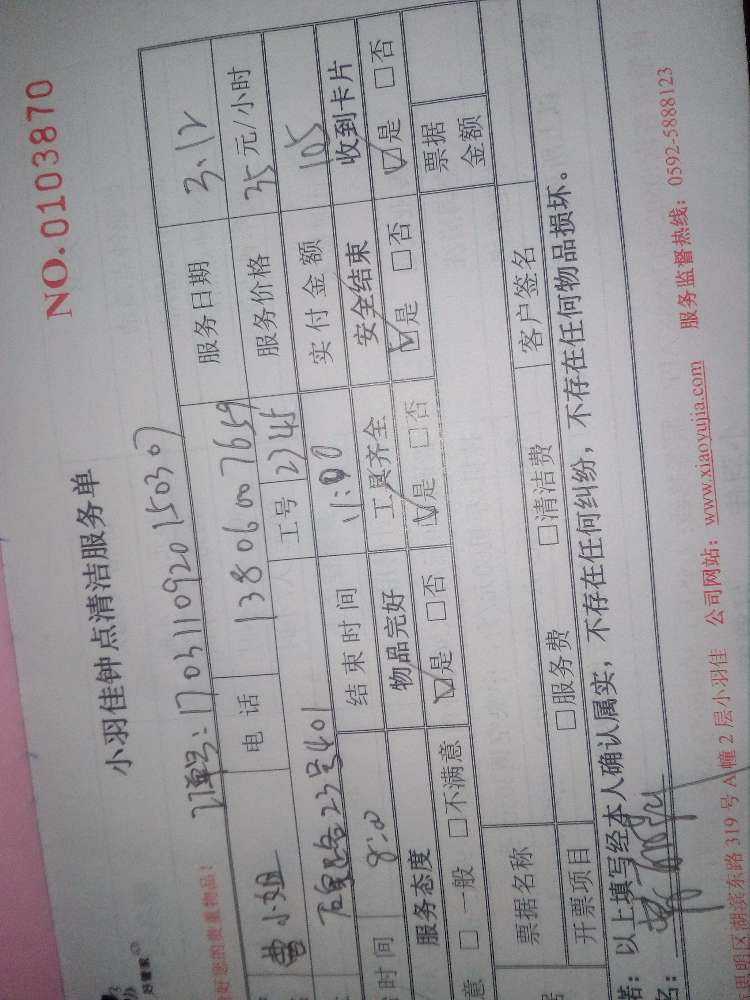 NO.0103870
小羽佳钟点清洁服务单
好管家
好您的贵重物品!
订单号:1703110920150307
曹小姐 电话 13806007659 服务日期 3.12
23号401 工号 2745 服务价格 35元/小时
时间 8:00 结束时间 11:00 实付金额 105
服务态度 物品完好 工具齐全 安全结束 收到卡片
意 □一般 □不满意 ☑是 □否 ☑是 □否 ☑是 □否 ☑是 □否
票据名称 票据金额
开票项目 □服务费 □清洁费 客户签名
:以上填写经本人确认属实,不存在任何纠纷,不存在任何物品损坏。
名:
思明区湖滨东路319号A幢2层小羽佳 公司网站:www.xiaoyujia.com 服务监督热线:0592-5888123